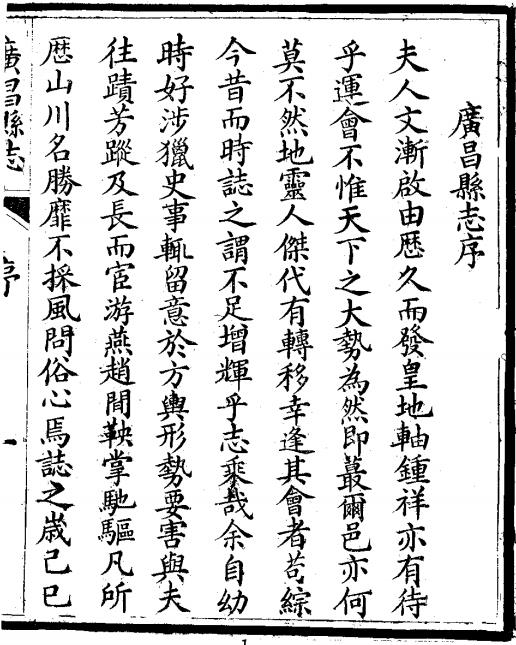 廣昌縣志序
夫人文漸啟由歷久而發皇地軸鍾祥亦有待
乎運會不惟天下之大勢為然即蕞爾邑亦何
莫不然地靈人傑代有轉移幸逢其會者苟綜
今昔而時誌之謂不足增輝乎志乘哉余自幼
時好涉獵史事輒留意於方輿形勢要害與夫
往蹟芳蹤及長而宦游燕趙間鞅掌馳驅凡所
歷山川名勝靡不採風問俗心焉誌之歲己巳
廣昌縣志
序
一
1